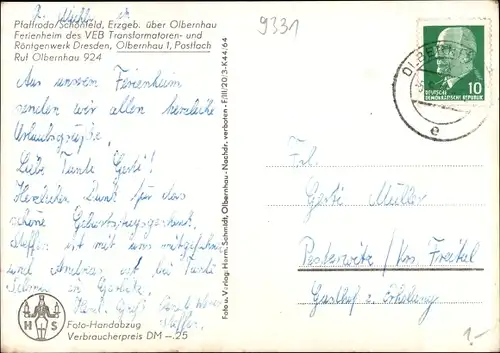 9331
Pfaffroda/Schönfeld, Erzgeb. über Olbernhau
Ferienheim des VEB Transformatoren- und
Röntgenwerk Dresden, Olbernhau 1, Postfach
Ruf Olbernhau 924
Aus unserem Ferienheim
senden wir allen herzliche
Urlaubsgrüße.
Liebe Tante Gerti!
Herzlichen Dank für das
schöne Geburtstagsgeschenk.
Steffen ist mit uns mitgefahren
und Andreas ist bei Tante
in
Herzl. Grüße
Steffen.
H S
Foto-Handabzug
Verbraucherpreis DM -.25
Foto u. Verlag: Harm. Schmidt, Olbernhau - Nachdr. verboten - F/III/20/3-K44/64
OLBERNHAU
e
10
DEUTSCHE
DEMOKRATISCHE REPUBLIK
Frl.
Gerti Müller
Pesterwitz / Krs. Freital
Gasthof z. Erholung
1.-